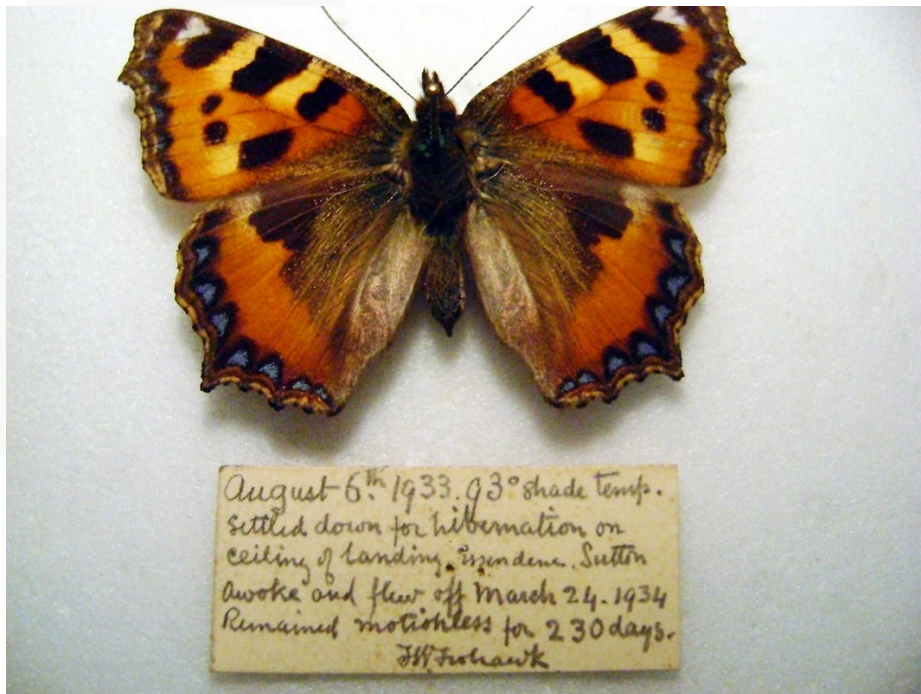 August 6th. 1933. 93° shade temp.
settled down for hibernation on
ceiling of landing. Essendene. Sutton
awoke and flew off March 24. 1934
Remained motionless for 230 days.
FW Frohawk